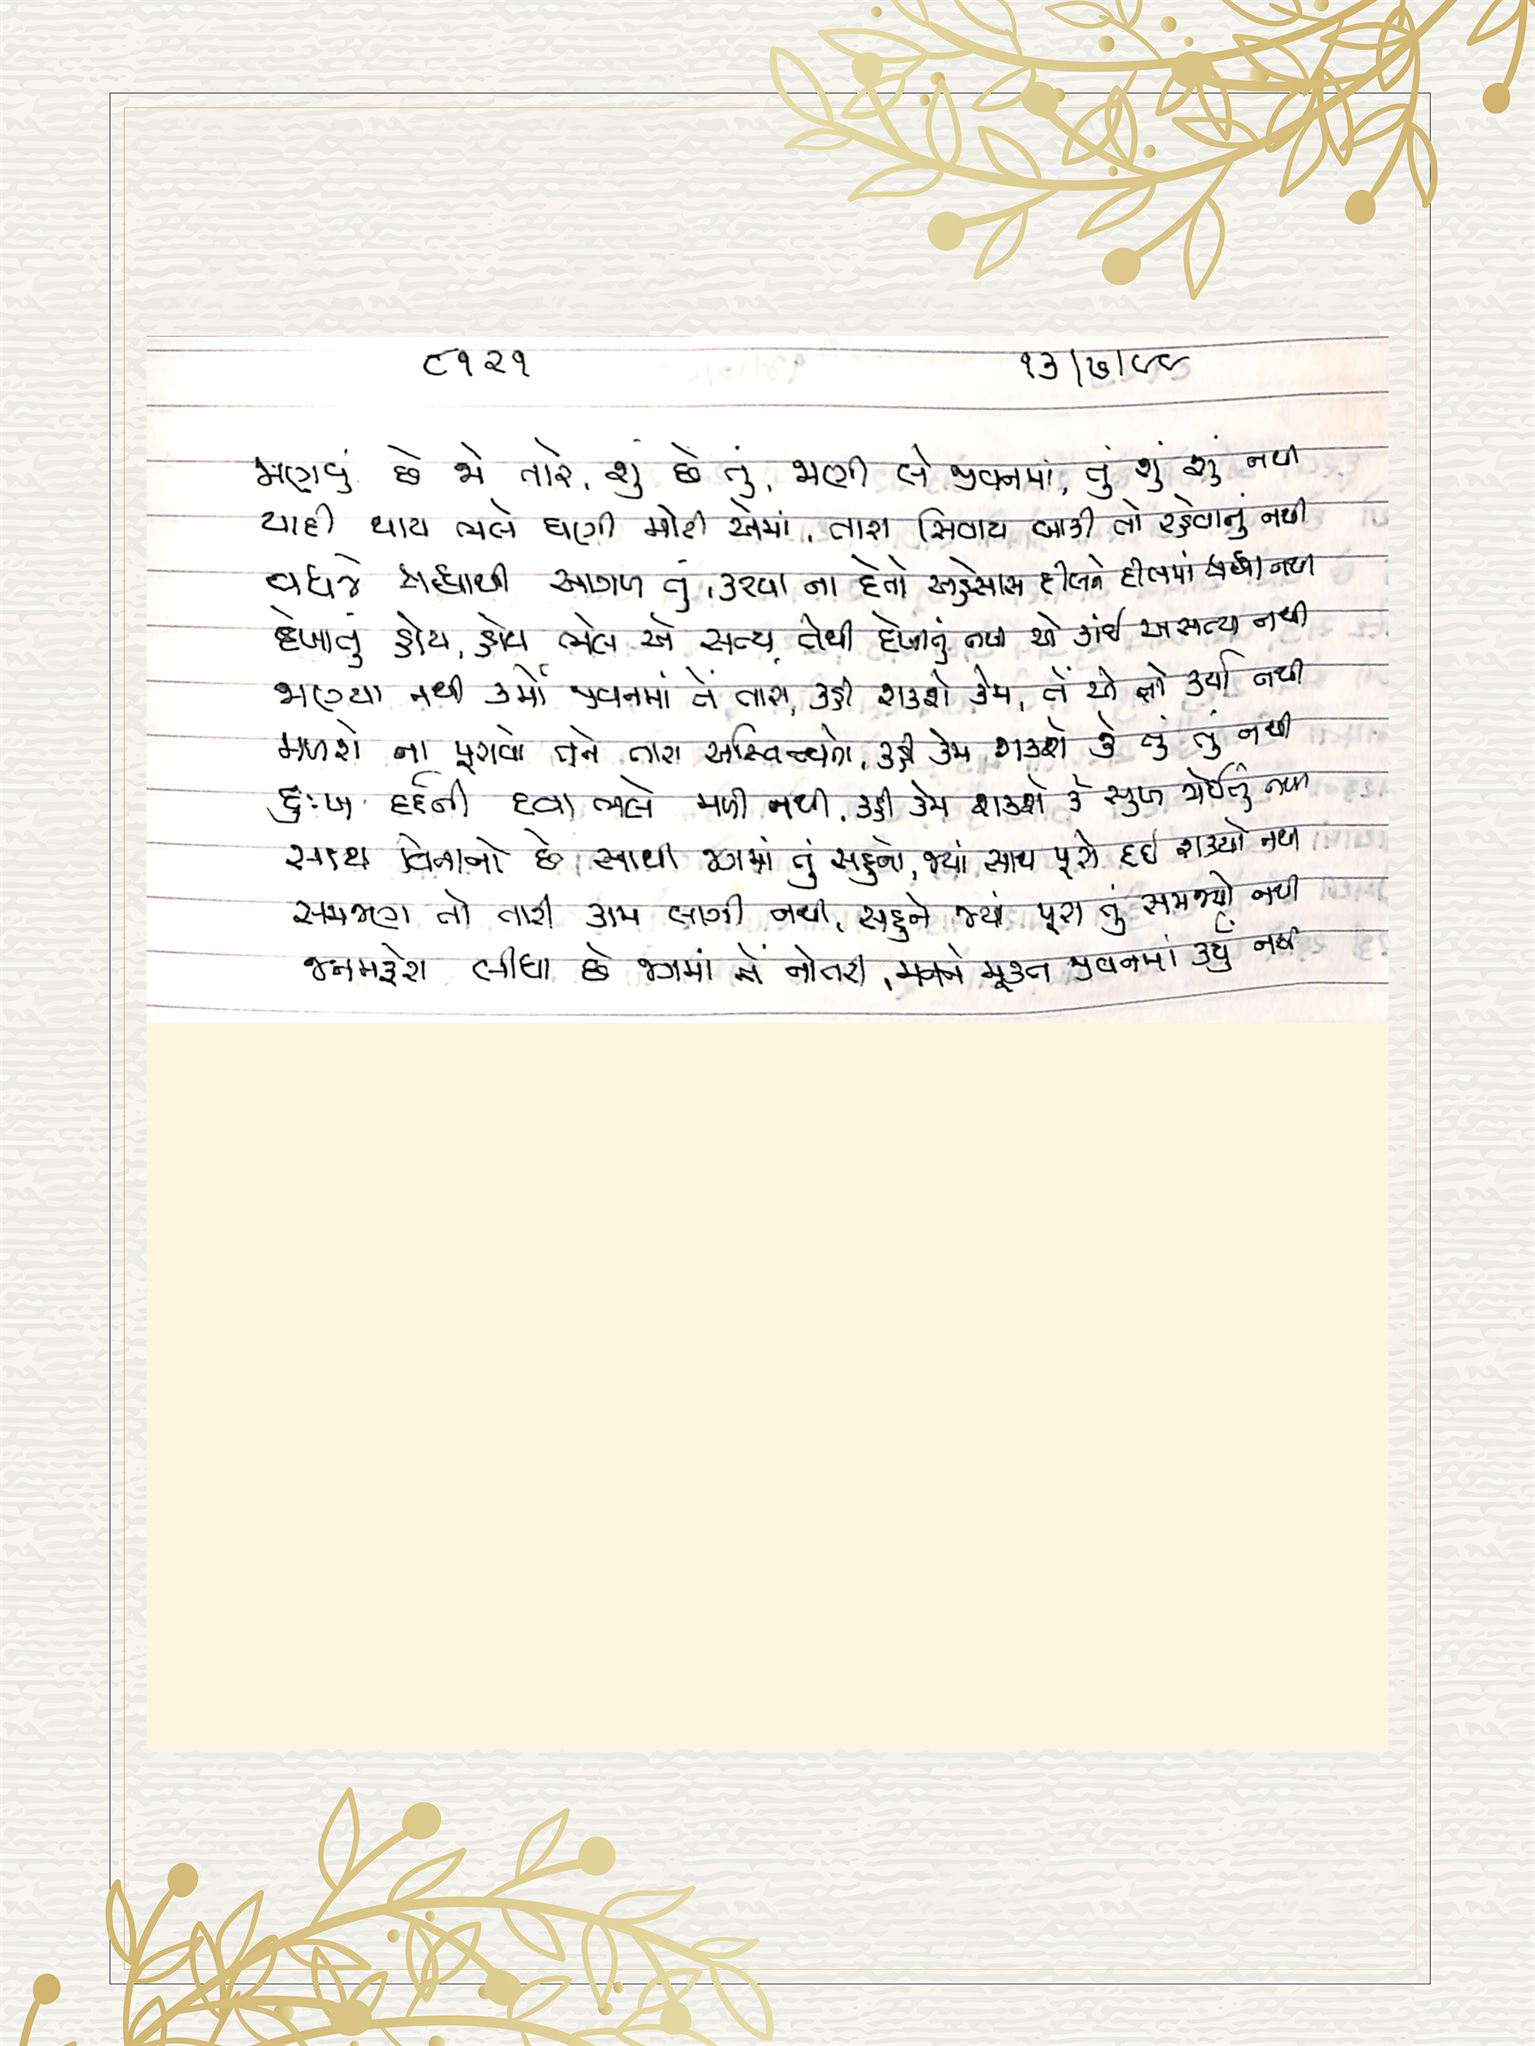 ૮૧૨૧ ૧૩/૭/૯૯
જાણવું છે જે તારે, શું છે તું, જાણી લે જીવનમાં, તું શું શું નથી
યાદી થાય ભલે ઘણી મોટી એમાં, તારા સિવાય બાકી તો રહેવાનું નથી
વધજે શ્રદ્ધાથી આગળ તું, કરવા ના દેતો અહેસાસ દીલને દીલમાં શ્રદ્ધા નથી
દેખાતું હોય, હોય ભલે એ સત્ય, તેથી દેખાતું નથી એ કાંઈ અસત્ય નથી
જાણ્યા નથી કર્મો જીવનમાં તેં તારા, કહી શકશે કેમ, તેં એ તો કર્યા નથી
મળશે ના પૂરાવો તને તારા અસ્તિત્વનો, કહી કેમ શકશે કે તું તું નથી
દુઃખ દર્દની દવા ભલે મળી નથી, કહી કેમ શકશે કે સુખ જોઈતું નથી
સાથ વિનાનો છે સાથી જગમાં તું સહુનો, જ્યાં સાથ પૂરો દઈ શક્યો નથી
સમજણ તો તારી કામ લાગી નથી, સહુને જ્યાં પૂરા તું સમજ્યો નથી
જનમફેરા લીધા છે જગમાં તેં નોતરી, મનને મુક્ત જીવનમાં કર્યું નથી